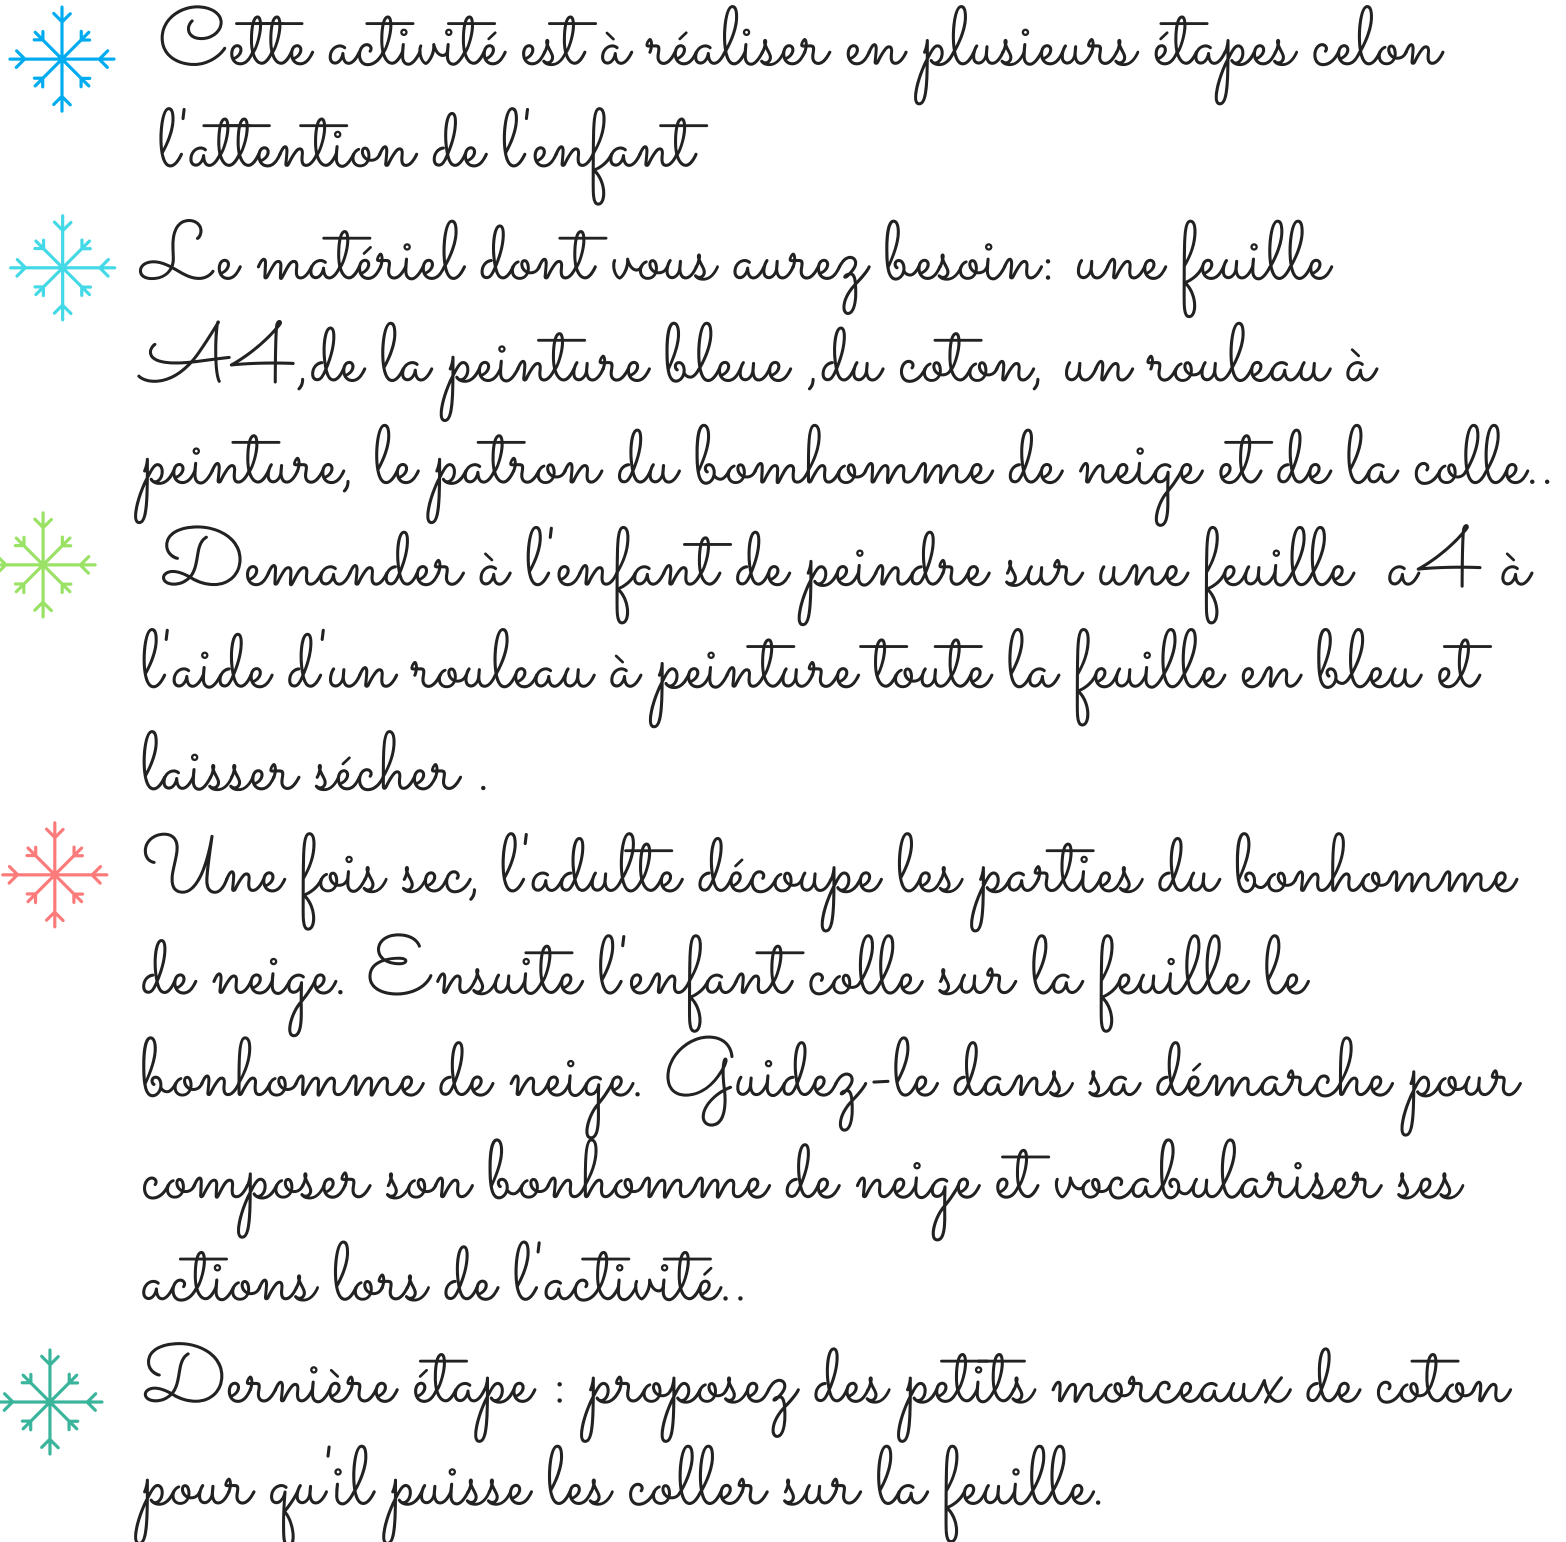 Cette activité est à réaliser en plusieurs étapes celon
l'attention de l'enfant
Le matériel dont vous aurez besoin: une feuille
A4,de la peinture bleue ,du coton, un rouleau à
peinture, le patron du bomhomme de neige et de la colle..
Demander à l'enfant de peindre sur une feuille a4 à
l'aide d'un rouleau à peinture toute la feuille en bleu et
laisser sécher .
Une fois sec, l'adulte découpe les parties du bonhomme
de neige. Ensuite l'enfant colle sur la feuille le
bonhomme de neige. Guidez-le dans sa démarche pour
composer son bonhomme de neige et vocabulariser ses
actions lors de l'activité..
Dernière étape : proposez des petits morceaux de coton
pour qu'il puisse les coller sur la feuille.